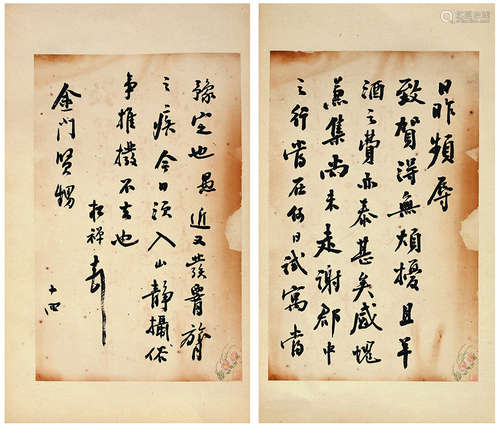 日昨頻辱
致賀得無煩擾且羊
酒之費亦泰甚矣感愧
兼集尚未走謝郡中
之行當在何日試寓當
豫定也愚近又發胃
之疾今日須入山靜攝
事推撥不去也
松禪
金門賢甥
十四